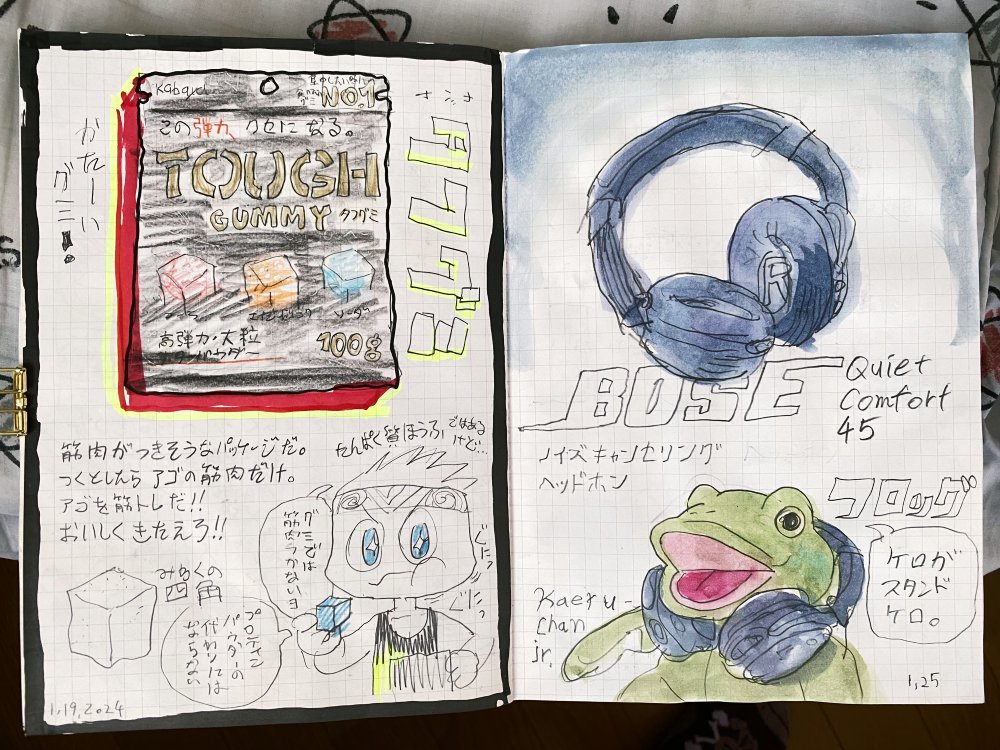 かたーい
グミ!
kabaya
集中したい時に
NO.1
この弾力、クセになる。
TOUGH
GUMMY タフグミ
ソーダー
高弾力・大粒
パウダー
100g
タフグミ
筋肉がつきそうなパッケージだ。
つくとしたらアゴの筋肉だけ。
アゴを筋トレだ!!
おいしくきたえろ!!
たんぱく質ほうふではある
けど…
グミでは
筋肉つかないヨ
ぐにっ
ぐにっ
みるくの
四角
プロテイン
パウダーの
代わりには
ならない
1,19,2024
BOSE
Quiet
Comfort
45
ノイズキャンセリング
ヘッドホン
フロッグ
ケロが
スタンド
ケロ。
Kaeru-
chan
jr.
1,25